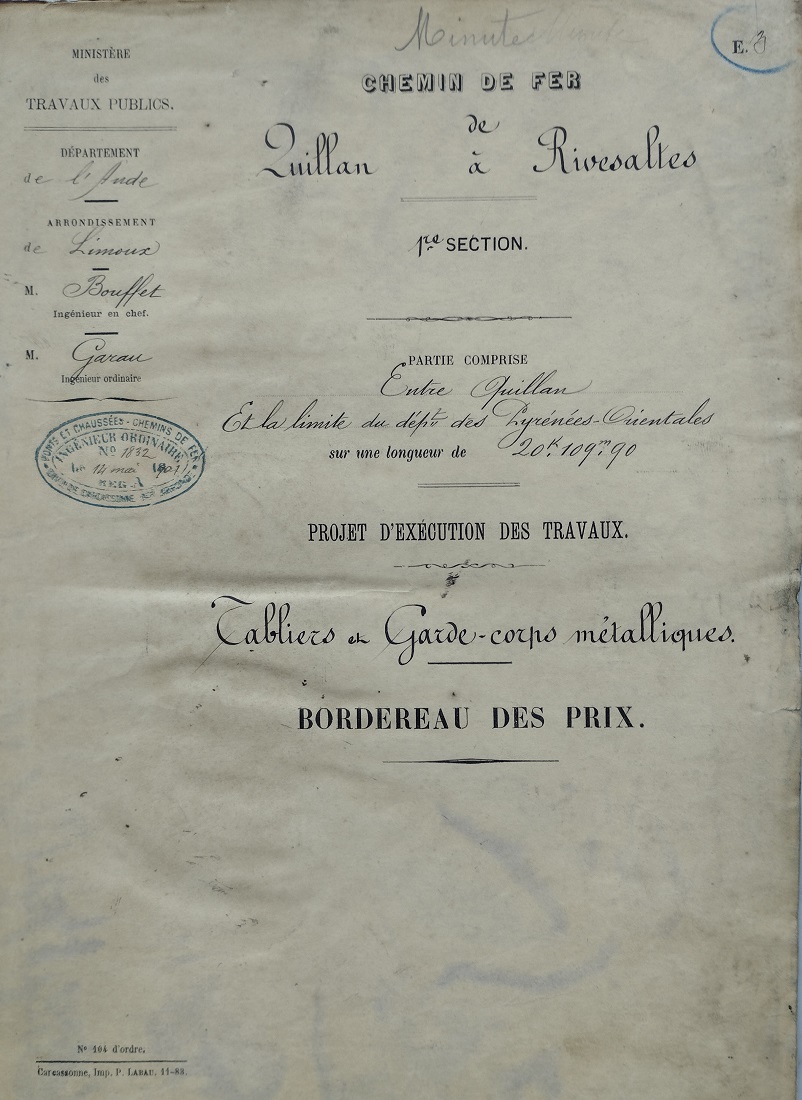 Minute
E. 3
MINISTÈRE
des
TRAVAUX PUBLICS.
DÉPARTEMENT
de l'Aude
ARRONDISSEMENT
de Limoux
M. Bouffet
Ingénieur en chef.
M. Garau
Ingénieur ordinaire
PONTS ET CHAUSSÉES - CHEMINS DE FER
INGÉNIEUR ORDINAIRE
N° 1832
Le 14 mai
REG. A
CHEMIN DE FER
de
Quillan à Rivesaltes
1re SECTION.
PARTIE COMPRISE
Entre Quillan
Et la limite du dépt des Pyrénées-Orientales
sur une longueur de 20K.109m90
PROJET D'EXÉCUTION DES TRAVAUX.
Tabliers et Garde-corps métalliques.
BORDEREAU DES PRIX.
N° 104 d'ordre.
Carcassonne, Imp. P. LABAU, 11-83.